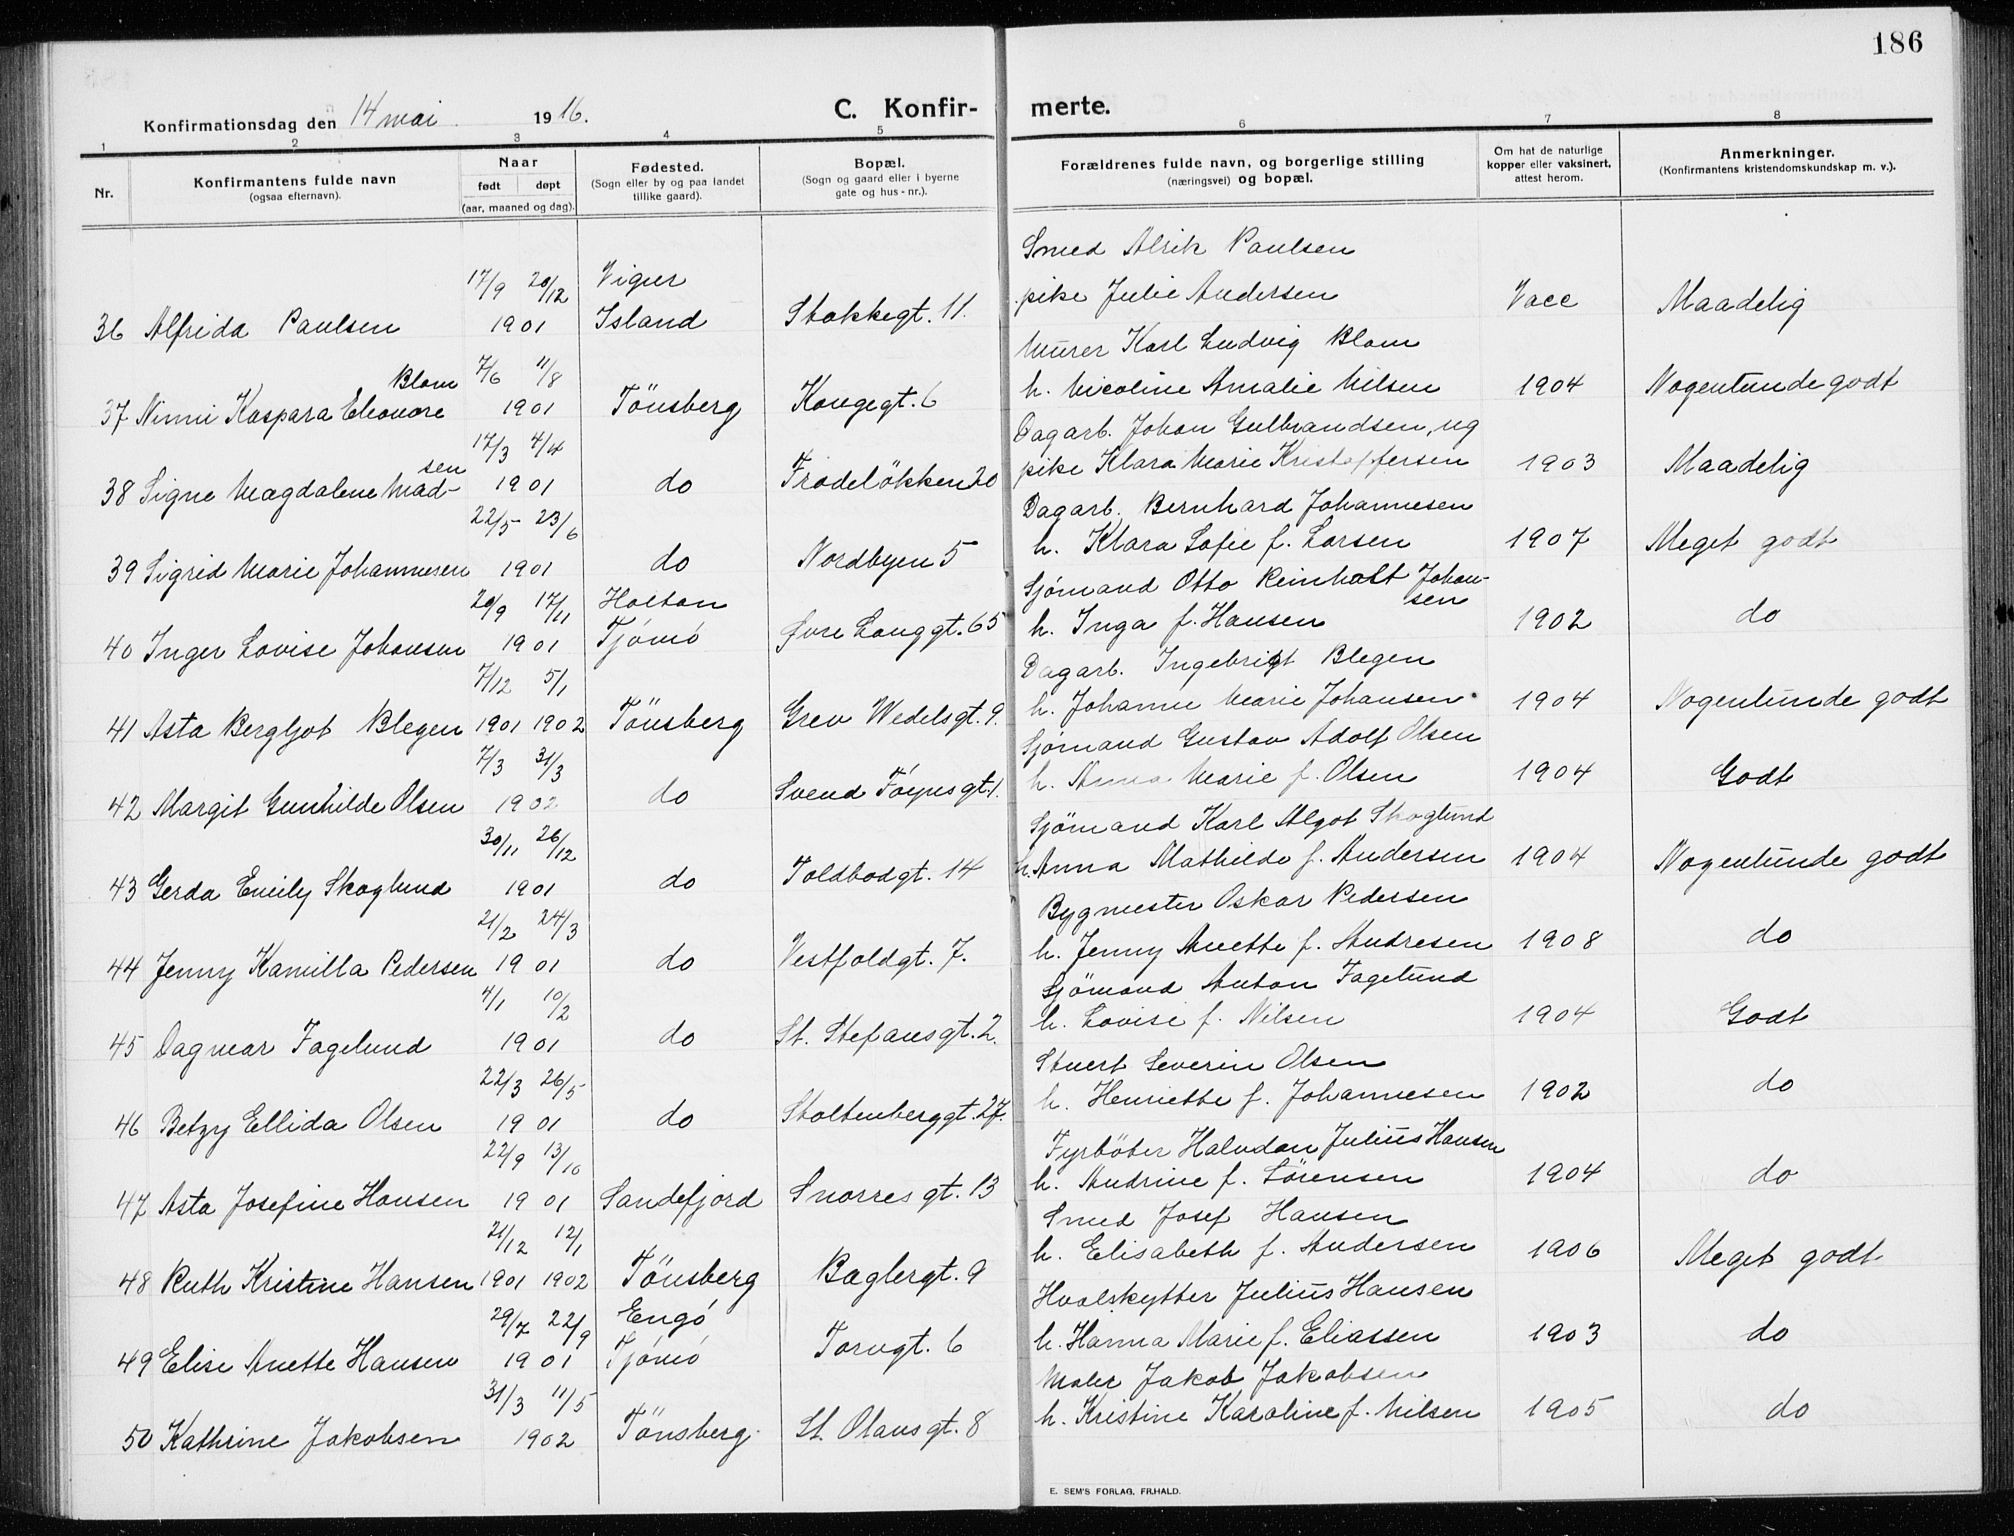 186
Konfirmationsdag den 14 mai 1916. C. Konfir- merte.
1 2 3 4 5 6 7 8
Nr.
Konfirmantens fulde navn
(ogsaa efternavn).
Naar
født døpt
(aar, maaned og dag).
Fødested.
(Sogn eller by og paa landet
tillike gaard).
Bopæl.
(Sogn og gaard eller i byerne
gate og hus-nr.).
Forældrenes fulde navn, og borgerlige stilling
(næringsvei) og bopæl.
Om hat de naturlige
kopper eller vaksinert,
attest herom.
Anmerkninger.
(Konfirmantens kristendomskundskap m. v.).
Smed Alrik Paulsen
17/9 20/12 Vigur pike Julie Andersen Vacc Maadelig
36 Alfrida Paulsen 1901 Island Stokkegt. 11.
Murer Karl Ludvig Blom
Blom 7/6 11/8 h. Nicoline Amalie Nilsen 1904 Nogenlunde godt
37 Ninni Kaspara Eleonore 1901 Tönsberg Kongegt. 6
Dagarb. Johan Gulbrandsen, ug
sen 17/3 4/4 pike Klara Marie Kristoffersen 1903 Maadelig
38 Signe Magdalene Mad- 1901 do Frodelökken 20
Dagarb. Bernhard Johannesen
22/5 23/6 h. Klara Sofie f. Larsen 1907 Meget godt
39 Sigrid Marie Johannesen 1901 do Nordbyen 5
Sjømand Otto Reinhalt Johan-
sen
20/9 17/11 Holtan h. Inga f. Hansen 1902 do
40 Inger Lovise Johansen 1901 Tjømø Øvre Langgt. 65
Dagarb. Ingebrigt Blegen
7/12 5/1 h. Johanne Marie Johansen 1904 Nogenlunde godt
41 Asta Bergljot Blegen 1901 1902 Tönsberg Grev Wedelsgt. 9.
Sjømand Gustav Adolf Olsen
7/3 31/3 h. Anna Marie f. Olsen 1904 Godt
42 Margit Gunhilde Olsen 1902 do Svend Foynsgt. 1.
Sjömand Karl Algot Skoglund
30/11 26/12 h. Anna Mathilde f. Andersen 1904 Nogenlunde godt
43 Gerda Emily Skoglund 1901 do Toldbodgt. 14
Bygmester Oskar Pedersen
21/2 24/3 h. Jenny Anette f. Andresen 1908 do
44 Jenny Kamilla Pedersen 1901 do Vestfoldgt. 7.
Sjömand Anton Fagelund
4/1 10/2 h. Lovise f. Nilsen 1904 Godt
45 Dagmar Fagelund 1901 do St. Stefansgt. 2.
Stuert Severin Olsen
22/3 26/5 h. Henriette f. Johannesen 1902 do
46 Betzy Ellida Olsen 1901 do Stoltenberggt. 27.
Fyrböter Halvdan Julius Hansen
22/9 13/10 h. Andrine f. Sörensen 1904 do
47 Asta Josefine Hansen 1901 Sandefjord Snorres gt. 13
Smed Josef Hansen
21/12 12/1 h. Elisabeth f. Andersen 1906 Meget godt
48 Ruth Kristine Hansen 1901 1902 Tönsberg Baglergt. 9
Hvalskytter Julius Hansen
29/7 22/9 Engö h. Hanna Marie f. Eliassen 1903 do
49 Elise Anette Hansen 1901 Tjömö Torvgt. 6
Maler Jakob Jakobsen
31/3 11/5 h. Kristine Karoline f. Nilsen 1905 do
50 Kathrine Jakobsen 1902 Tönsberg. St. Olavsgt. 8
E. SEM'S FORLAG, FR.HALD.